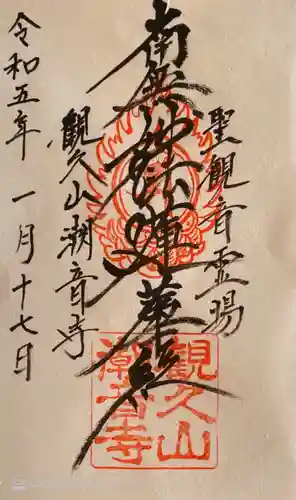 聖観音霊場
南無妙法蓮華経
観久山潮音寺
令和五年 一月十七日
観久山
潮音寺